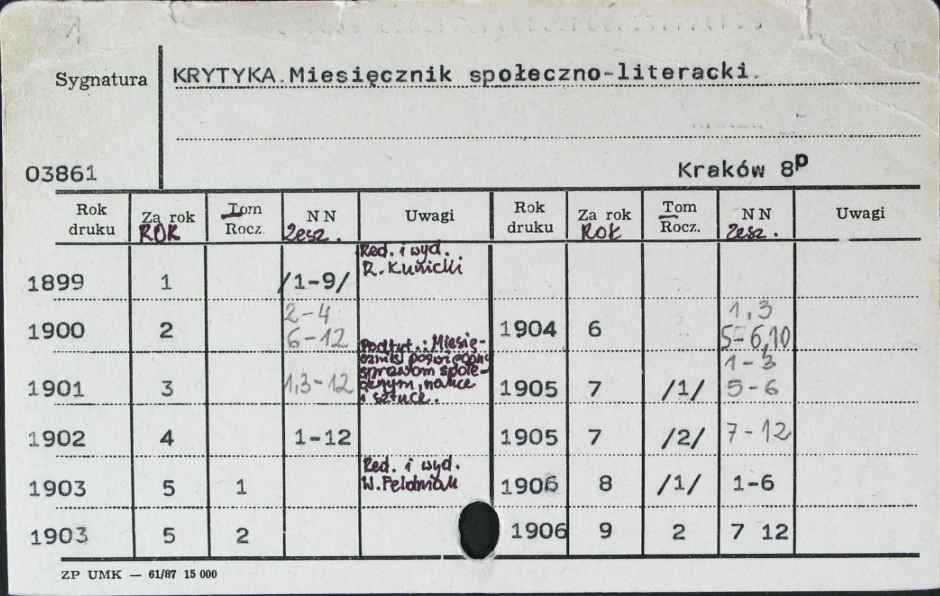 Sygnatura
KRYTYKA.Miesięcznik społeczno-literacki.
03861
Kraków 8p
Rok druku Za rok ROK Tom Rocz. NN Zesz. Uwagi Rok druku Za rok ROK Tom Rocz. NN Zesz. Uwagi
Red. i wyd.
R. Kunicki
1899 1 /1-9/
2-4
1900 2 6-12
1904 6 1,3
5-6,10
Podtyt.: Miesię-
cznik poświęcony
sprawom społe-
cznym, nauce
i sztuce.
1901 3 1,3-12
1905 7 /1/ 1-3
5-6
1902 4 1-12
1905 7 /2/ 7-12
Red. i wyd.
W. Feldman
1903 5 1
1906 8 /1/ 1-6
1903 5 2
1906 9 2 7 12
ZP UMK — 61/87 15 000